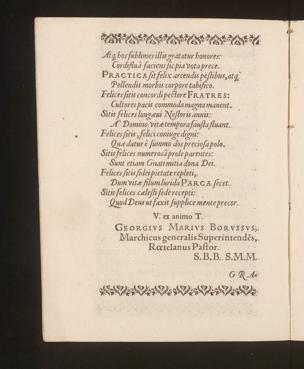 Atq, hos sublimes illis gratatur honores:
Cordis tuâ faciens sic pia vota prece.
PRACTICA sit felix arcendis pestibus, atq,
Pellendis morbis corpore tabifico.
Felices sitis concordi pectore FRATRES:
Cultores pacis commoda magna manent.
Sitis felices longævi Nestoris annis:
A Domino vitæ tempora fausta fluant.
Felices sitis, felici coniuge digni:
Quæ datur è summo dos preciosa polo.
Sitis felices numerosâ prole parentes:
Sunt etiam Gnati mitia dona Dei.
Felices sitis fidei pietate repleti,
Dum vitæ filum lurida PARCA secet.
Sitis felices cælesti sede recepti:
Quod Deus ut faxit supplice mente precor.
V. ex animo T.
GEORGIVS MARIVS BORVSSVS,
Marchicus generalis Superintendēs,
Rœtelanus Pastor.
S.B.B. S.M.M.
GRA-